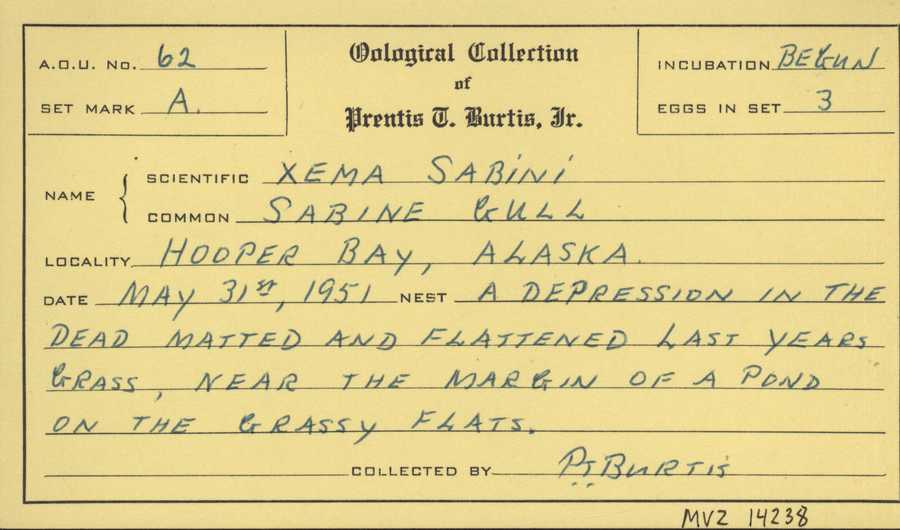 A.O.U. No. 62
SET MARK A.
Oological Collection
of
Prentis T. Burtis, Jr.
INCUBATION BEGUN
EGGS IN SET 3
NAME
SCIENTIFIC XEMA SABINI
COMMON SABINE GULL
LOCALITY HOOPER BAY, ALASKA.
DATE MAY 31st, 1951 NEST A DEPRESSION IN THE
DEAD MATTED AND FLATTENED LAST YEARS
GRASS, NEAR THE MARGIN OF A POND
ON THE GRASSY FLATS.
COLLECTED BY PTBURTIS
MVZ 14238